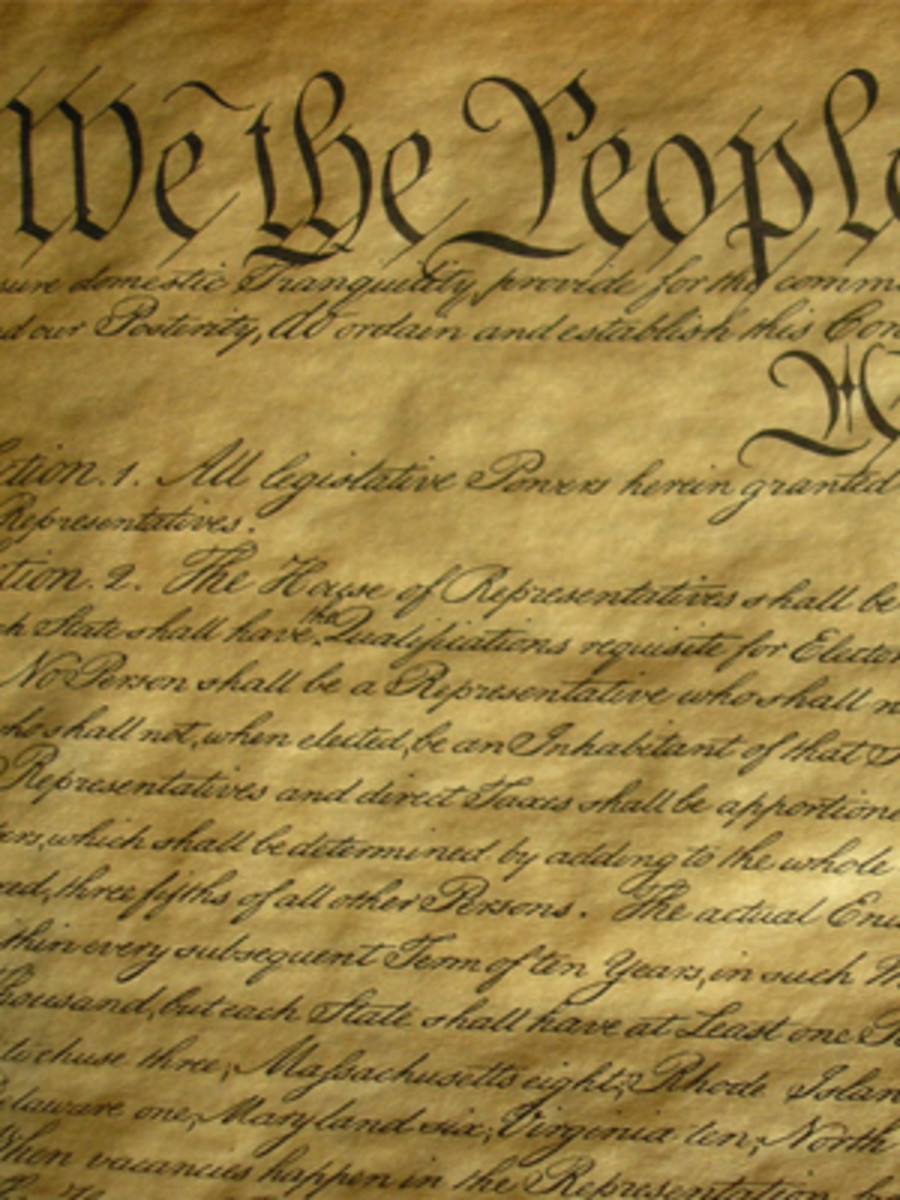 We the People
sure domestic Tranquility, provide for the comm
nd our Posterity, do ordain and establish this Con
ction. 1. All legislative Powers herein granted
Representatives.
ction. 2. The House of Representatives shall be
ch State shall have the Qualifications requisite for Elector
No Person shall be a Representative who shall n
who shall not, when elected, be an Inhabitant of that S
Representatives and direct Taxes shall be apportione
ers, which shall be determined by adding to the whole
xed, three fifths of all other Persons. The actual Enu
thin every subsequent Term of ten Years, in such M
Thousand, but each State shall have at Least one R
to chuse three, Massachusetts eight, Rhode Islan
elaware one, Maryland six, Virginia ten, North
When vacancies happen in the Representation